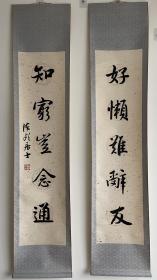 好懶難辭友
知窮豈念通